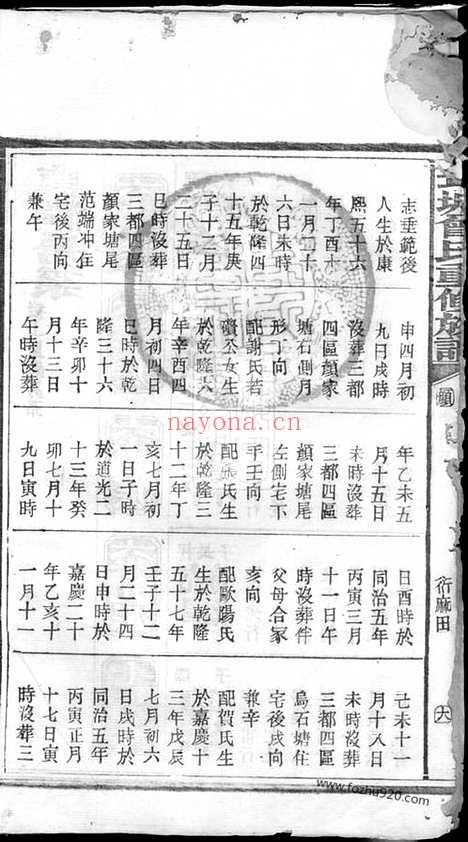 氏重修族譜
衍麻田
志垂範後
人生於康
熙五十六
年丁酉十
一月二十
六日未時
於乾隆四
十五年庚
子十二月
二十五日
巳時沒葬
三都四區
顏家塘尾
范端冲在
宅後丙向
兼午
申四月初
九日戌時
沒葬三都
四區顏家
塘石側月
形丁向
配謝氏若
瓚公女生
於乾隆六
年辛酉四
月初四日
巳時於乾
隆三十六
年辛卯十
月十三日
午時沒葬
年乙未五
月十五日
未時沒葬
三都四區
顏家塘尾
左側宅下
手壬向
配張氏生
於乾隆三
十二年丁
亥七月初
一日子時
於道光二
十三年癸
卯七月十
九日寅時
日酉時於
同治五年
丙寅三月
十一日午
時沒葬件
父母合冢
亥向
配歐陽氏
生於乾隆
五十七年
壬子十二
月二十四
日申時於
嘉慶二十
年乙亥十
一月十一
己未十一
月十八日
未時沒葬
三都四區
烏石塘住
宅後戌向
兼辛
配賀氏生
於嘉慶十
三年戊辰
七月初六
日戌時於
同治五年
丙寅正月
十七日寅
時沒葬三
nayona.cn
www.fozhu920.com